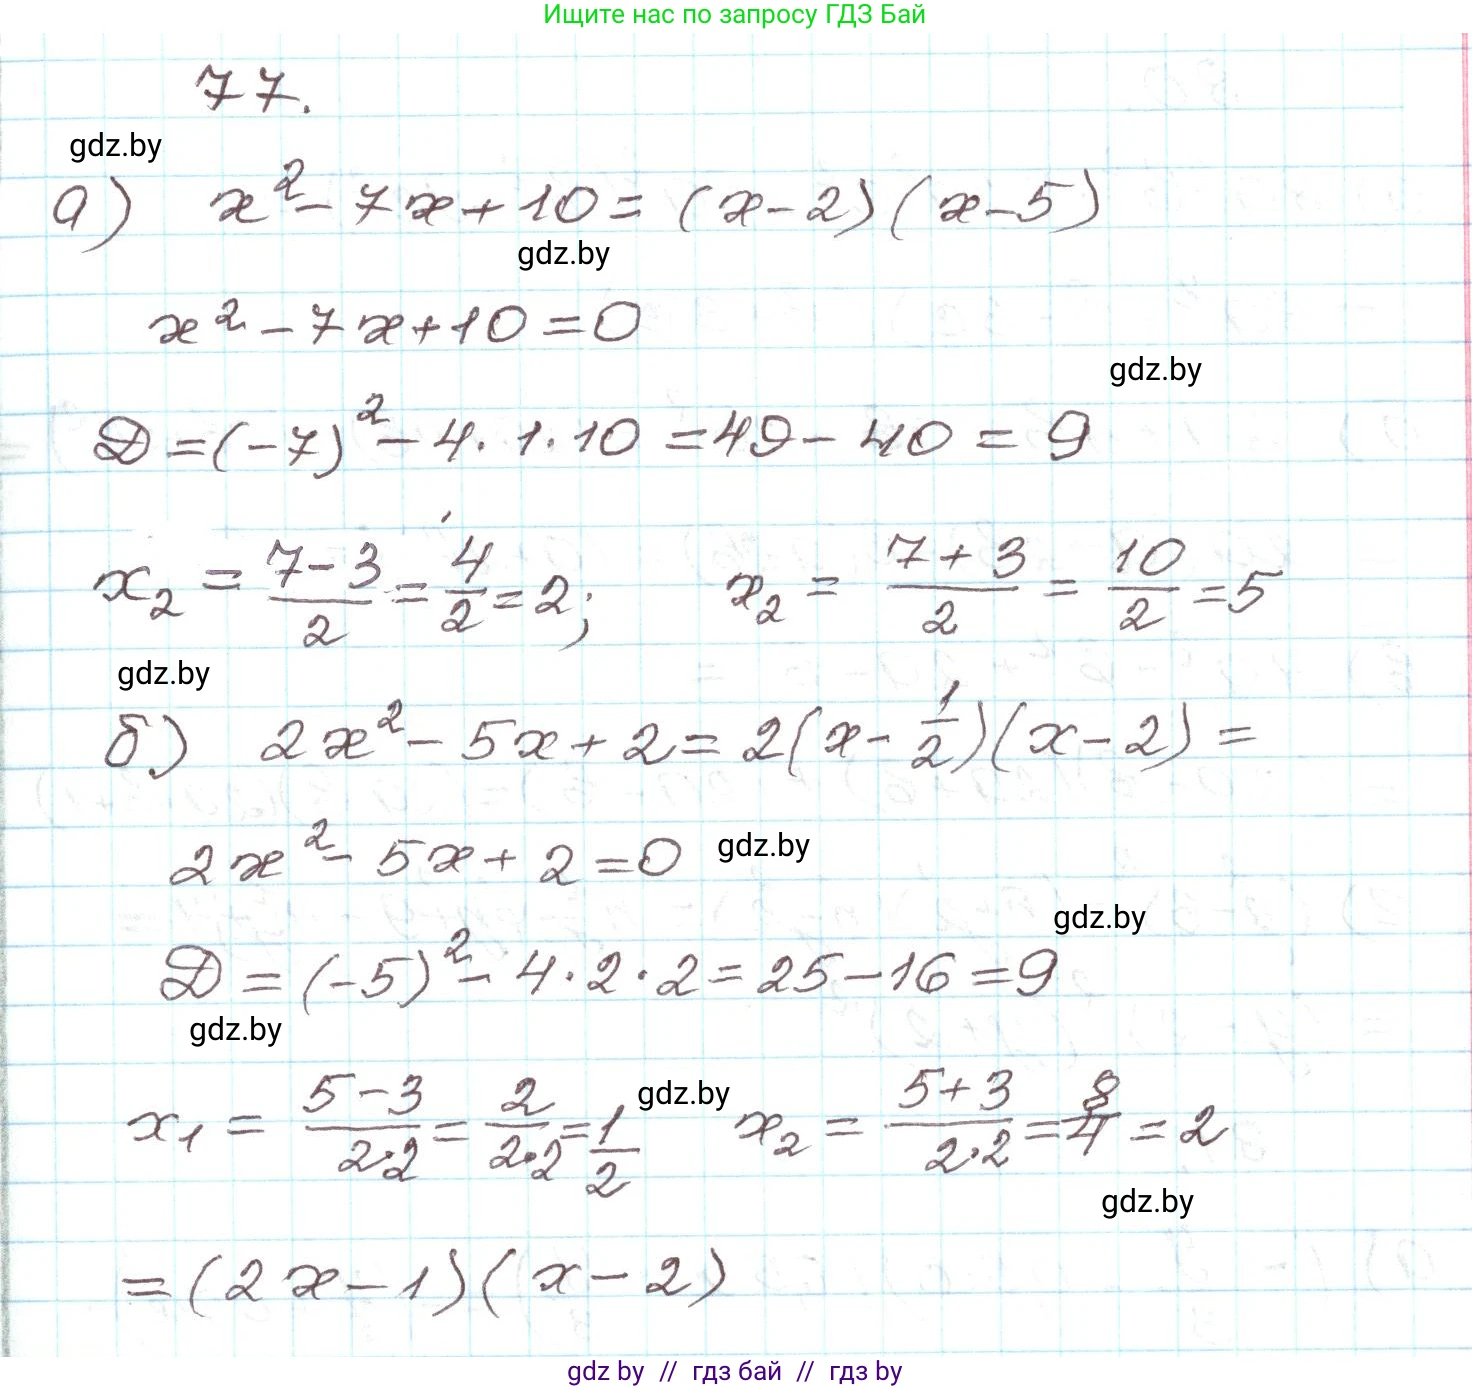 Ищите нас по запросу ГДЗ Бай
77.
gdz.by
а) x² - 7x + 10 = (x - 2)(x - 5)
gdz.by
x² - 7x + 10 = 0
gdz.by
D = (-7)² - 4 · 1 · 10 = 49 - 40 = 9
x₂ = (7 - 3)/2 = 4/2 = 2; x₂ = (7 + 3)/2 = 10/2 = 5
gdz.by
б) 2x² - 5x + 2 = 2(x - 1/2)(x - 2) =
2x² - 5x + 2 = 0 gdz.by
gdz.by
D = (-5)² - 4 · 2 · 2 = 25 - 16 = 9
gdz.by
gdz.by
x₁ = (5 - 3)/(2·2) = 2/(2·2) = 1/2 x₂ = (5 + 3)/(2·2) = 8/4 = 2
gdz.by
= (2x - 1)(x - 2)
gdz by // гдз бай // гдз by